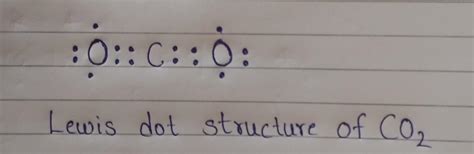 :Ọ̇:: C::Ọ̇:
Lewis dot structure of CO₂